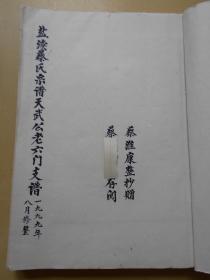 盐缘蔡氏宗谱天武公老六门支谱
一九九九年
八月修整
蔡维康整抄赠
蔡 存阅